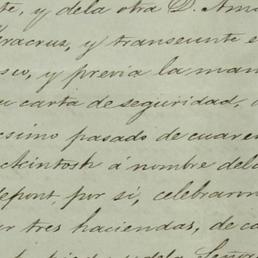 te, y dela otra D. Ama
eracruz, y transeunte e
sco, y previa la man
u carta de seguridad,
esimo pasado de cuaren
ckintosh á nombre dela
lefont por si, celebraron
er tres haciendas, de ca
y dela Seña